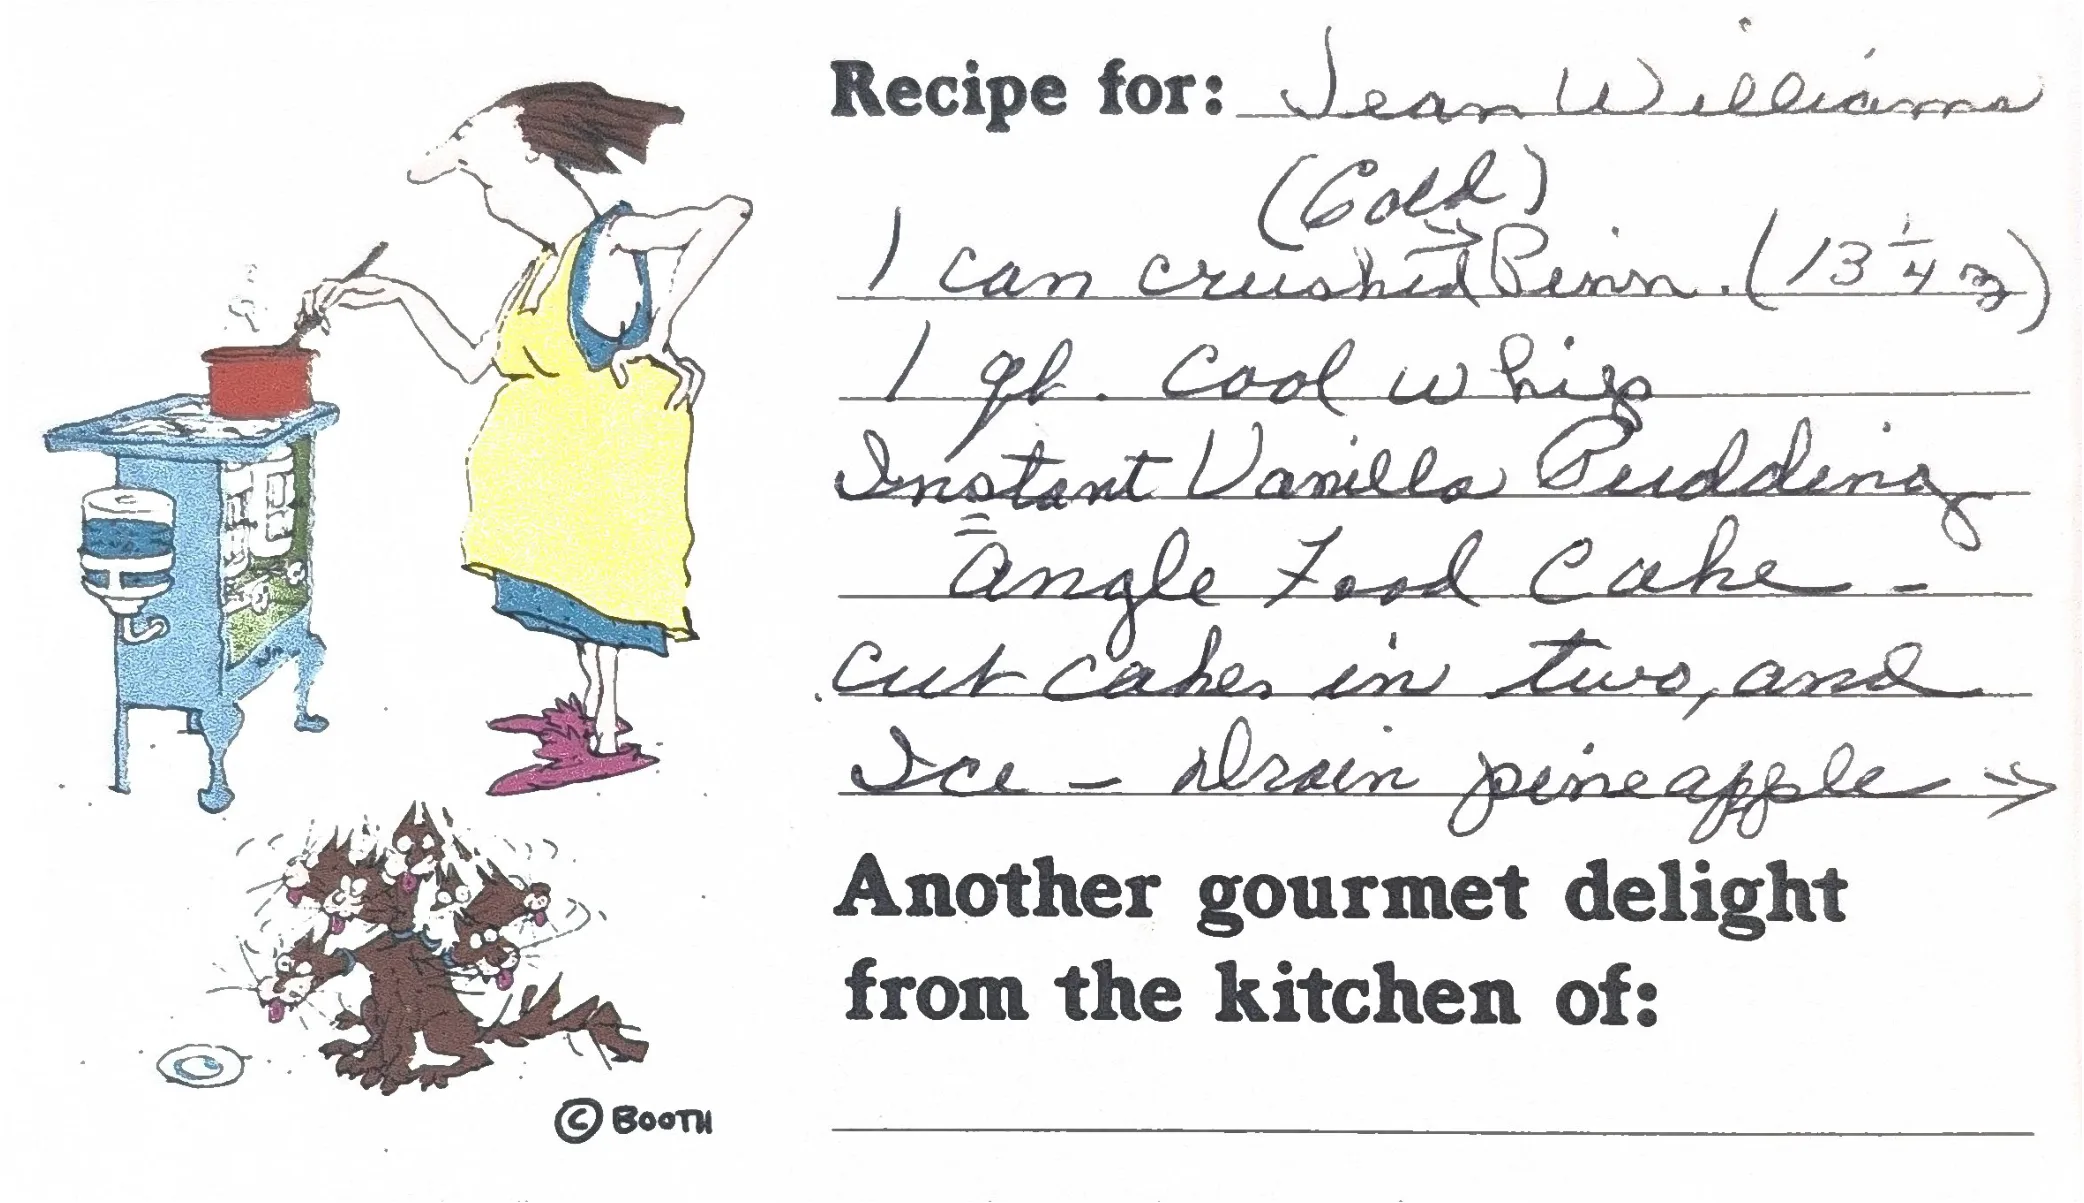 Recipe for: Jean Williams
(Cold)
1 can crushed → Pinn. (13 1/4 oz)
1 qt. Cool whip
Instant Vanilla Pudding
Angle Food Cake -
cut cakes in two, and
Ice - Drain pineapple →
Another gourmet delight
from the kitchen of:
© BOOTH